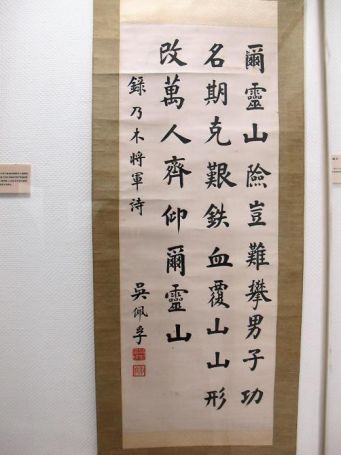 爾靈山險豈難攀男子功
名期克艱鉄血覆山山形
改萬人齊仰爾靈山
錄乃木將軍诗
吳佩孚